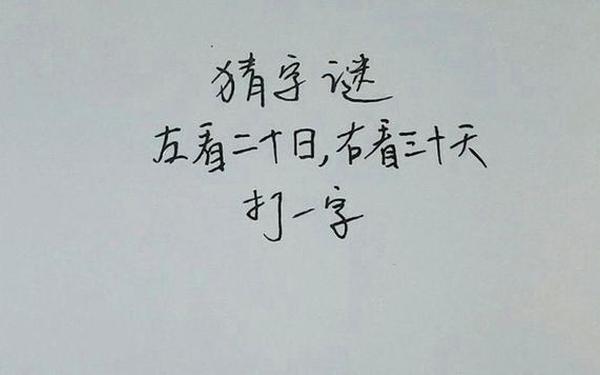 猜字谜
左看二十日,右看三十天
打一字